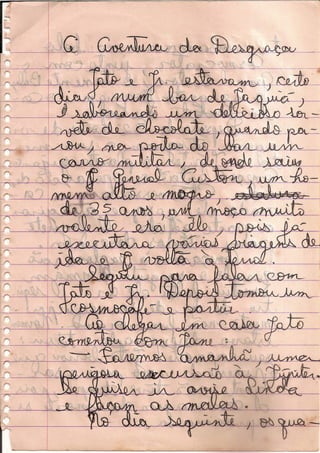 A aventura da Desgraça
Jato e Jr. estavam, certo
dia, num bar de Taquiá,
saboreando um delicioso sor-
vete de chocolate, quando pa-
rou, na porta do bar um
carro militar, de onde saiu
o General Custon, um ho-
mem alto e magro,
de 35 anos, um moço muito
valente era ele, pois já
executara várias viagens de
ida e volta a
Seguiu para falar com
Jato e Jr. Depois tomou um
Cosmocafé e partiu
Ao chegar em casa Jato
comentou com Jane:
— Faremos amanhã uma
perigosa excursão à Júpiter.
Se quiser ir avise Linda
e façam as malas.
No dia seguinte, os qua-